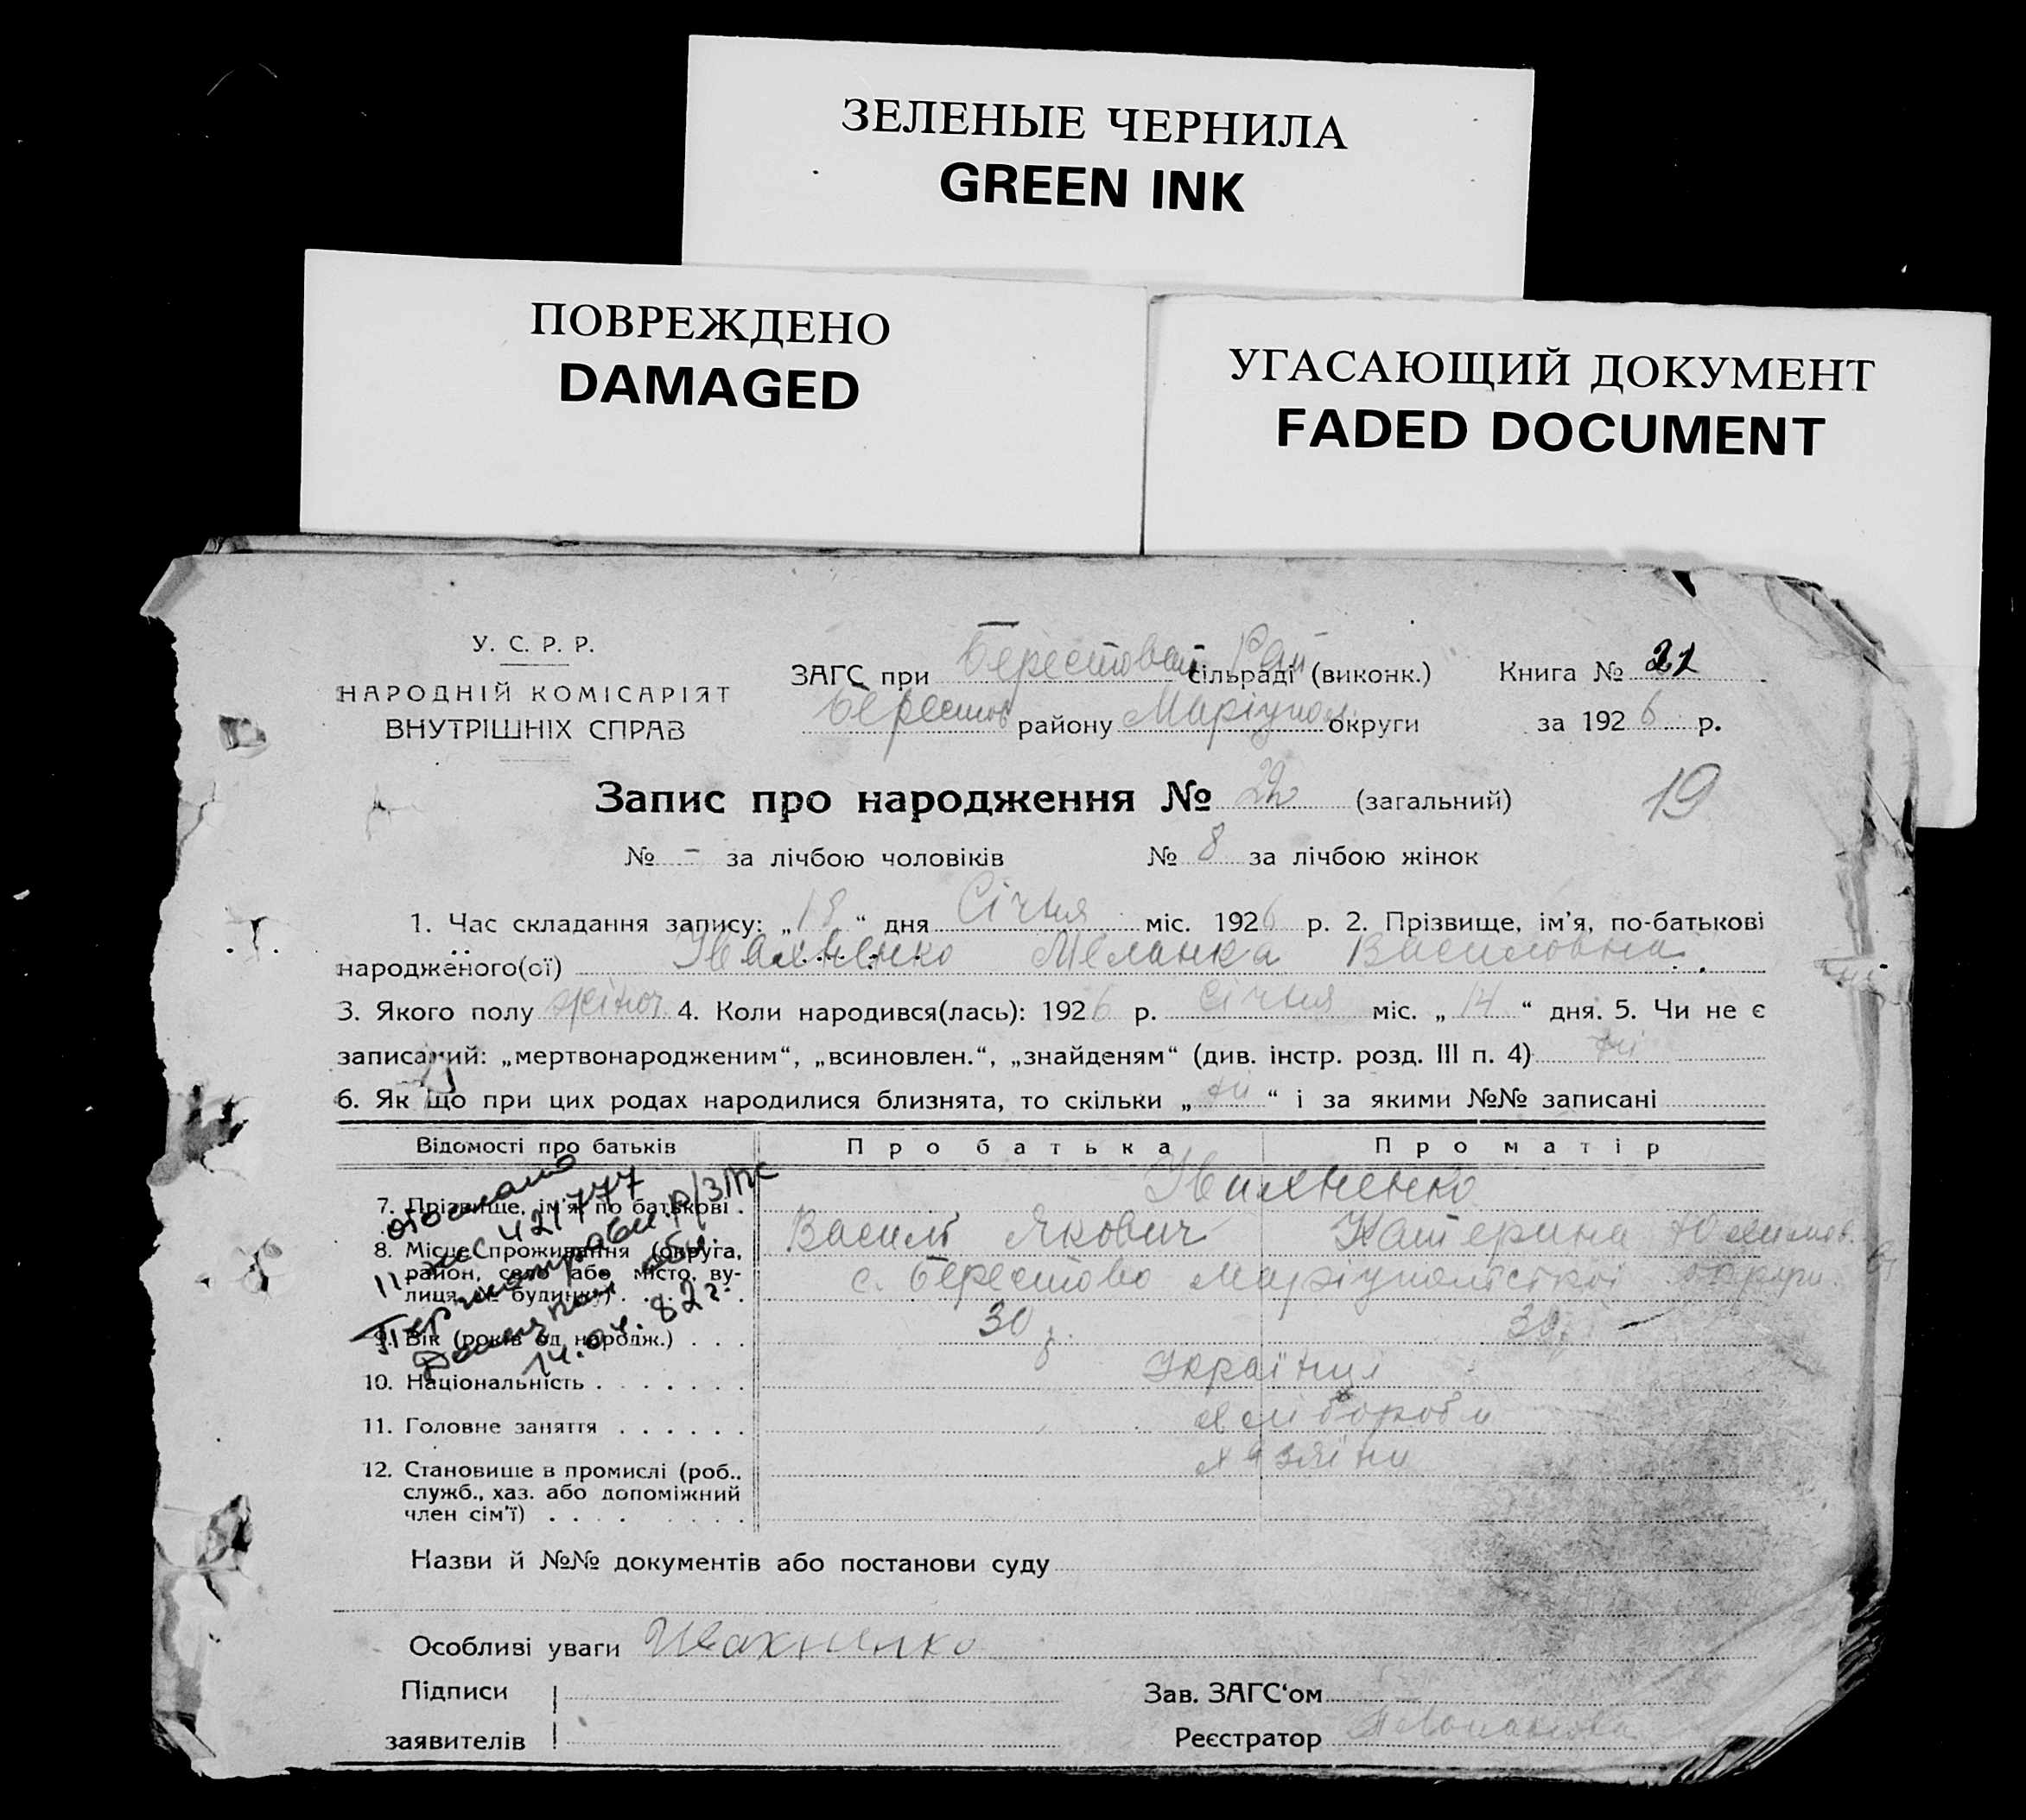 ЗЕЛЕНЫЕ ЧЕРНИЛА
GREEN INK
ПОВРЕЖДЕНО
DAMAGED
УГАСАЮЩИЙ ДОКУМЕНТ
FADED DOCUMENT
У. С. Р. Р.
НАРОДНІЙ КОМІСАРІЯТ
ВНУТРІШНІХ СПРАВ
ЗАГС при Берестовой Рай сільраді (виконк.) Книга № 21
Берестов району Маріупол. округи за 1926 р.
Запис про народження № 22 (загальний) 19
№ - за лічбою чоловіків № 8 за лічбою жінок
1. Час складання запису: „18“ дня Січня міс. 1926 р. 2. Прізвище, ім’я, по-батькові
народженого(ої) Івахненко Меланка Василовна
3. Якого полу жіноч 4. Коли народився(лась): 1926 р. Січня міс. „14“ дня. 5. Чи не є
записаний: „мертвонародженим“, „всиновлен.“, „знайденям“ (див. інстр. розд. III п. 4) ні
6. Як що при цих родах народилися близнята, то скільки „ні“ і за якими №№ записані
Відомості про батьків Про батька Про матір
7. Прізвище, ім’я, по батькові Івахненко
Василь Якович Катерина Юхимов.
8. Місце проживання (округа, район, село або місто, вулиця, № будинку) с. Берестово Маріупольської округи
9. Вік (років од народж.) 30 30
10. Національність Українці
11. Головне заняття хлібороби
12. Становище в промислі (роб., хазяїни
служб., хаз. або допоміжний
член сім’ї)
421777
14.04.82 г.
Назви й №№ документів або постанови суду
Особливі уваги Ивахненко
Підписи Зав. ЗАГС‘ом
заявителів Реєстратор